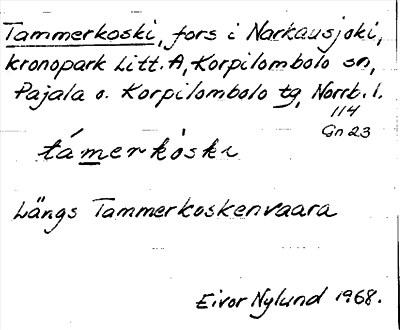 Tammerkoski, fors i Narkausjoki,
kronopark Litt. A, Korpilombolo sn,
Pajala o. Korpilombolo tg, Norrb. l.
114
Gn 23
támerkòski
Längs Tammerkoskenvaara
Eivor Nylund 1968.